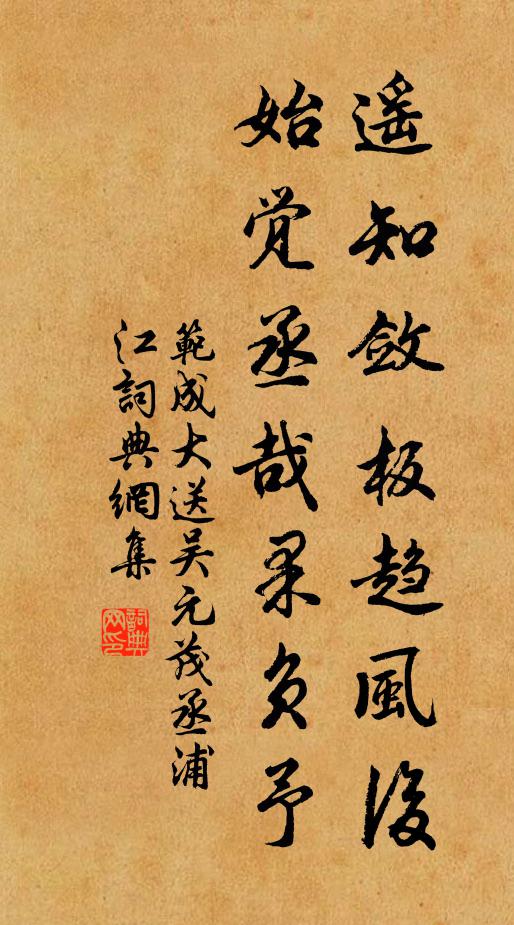 遥知敛板趋風後
始觉丞哉果负予
範成大送吴元茂丞浦
江詞典網集
詞典网印